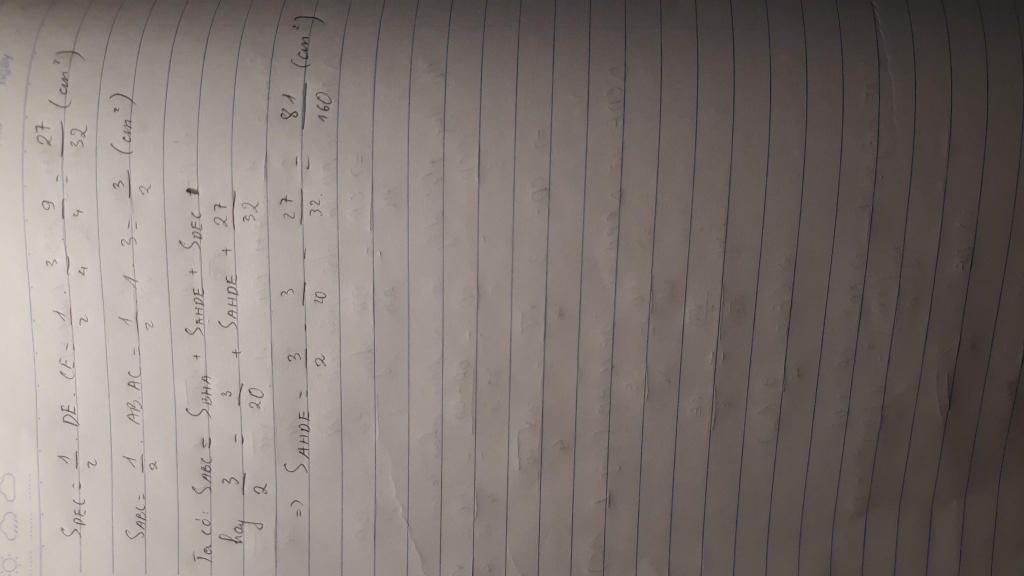 S_DEC = 1/2 . DE . CE = 1/2 . 3/4 . 9/4 = 27/32 (cm²)
S_ABC = 1/2 . AB . AC = 1/2 . 1 . 3 = 3/2 (cm²)
Ta có: S_ABC = S_BHA + S_AHDE + S_DEC
hay 3/2 = 3/20 + S_AHDE + 27/32
=) S_AHDE = 3/2 - 3/20 - 27/32 = 81/160 (cm²)